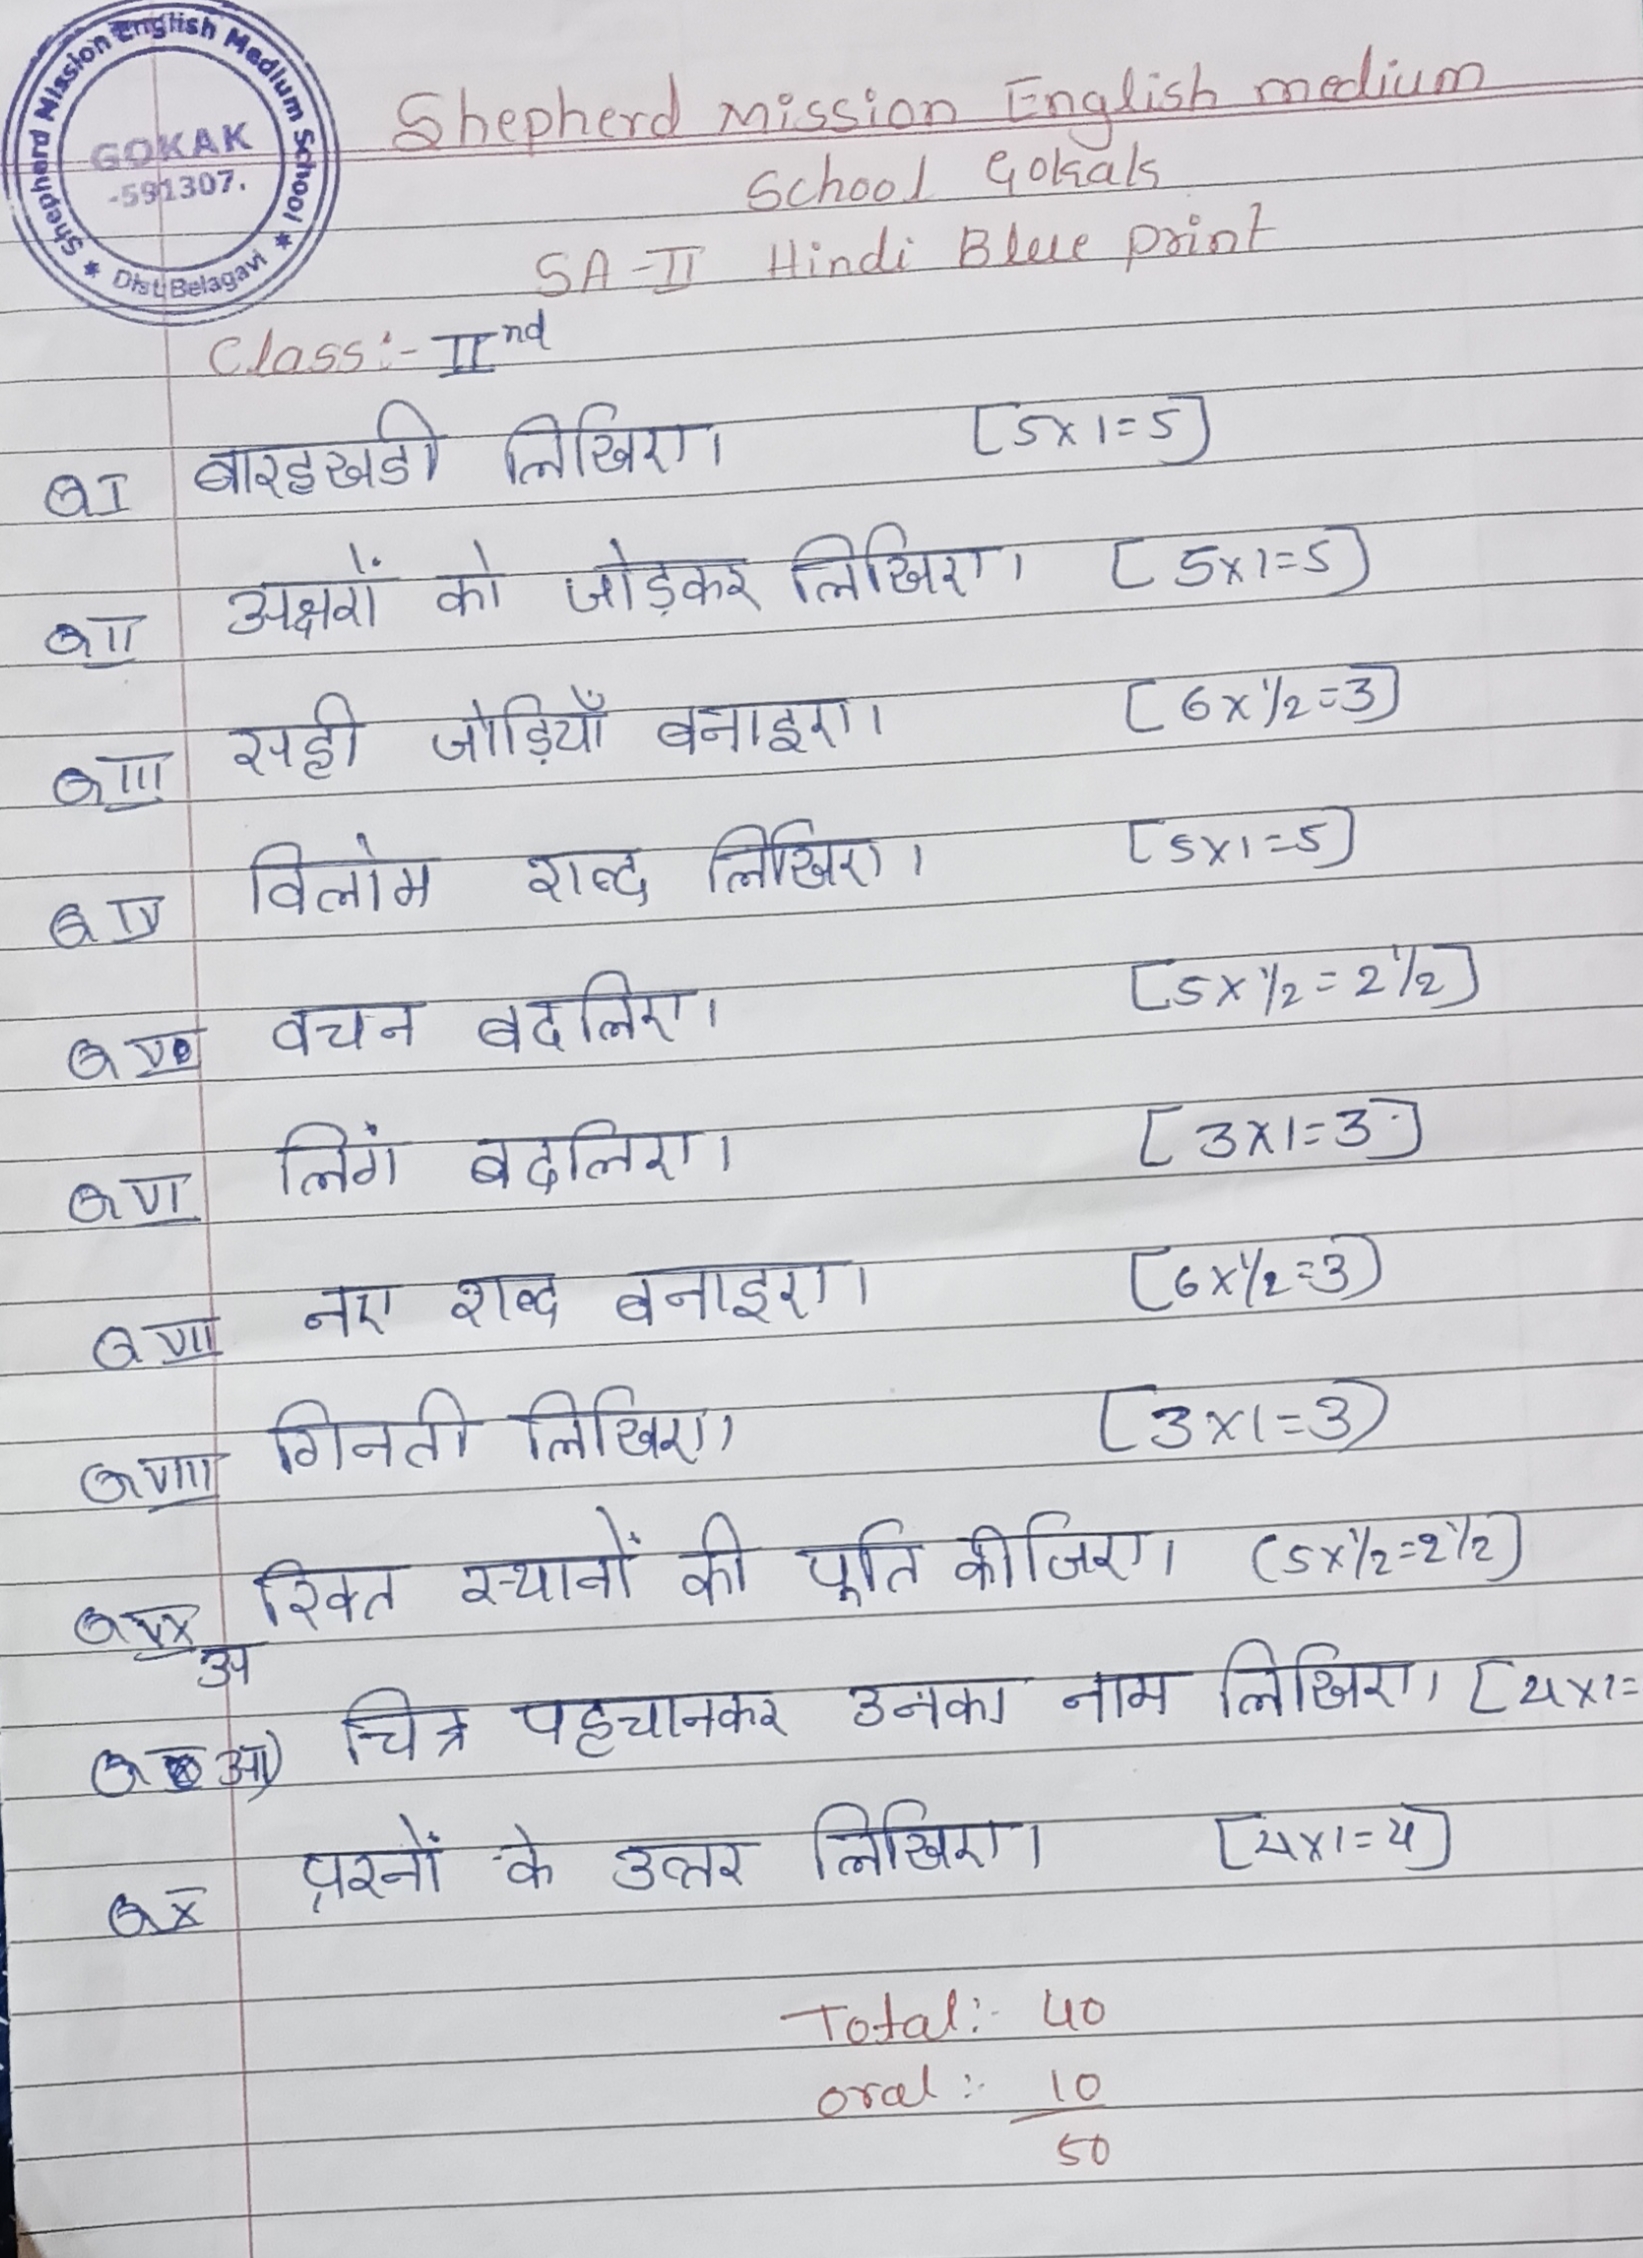 Shepherd Mission English Medium School
GOKAK
-591307.
Dist Belagavi
Shepherd Mission English medium
School Gokak
SA-II Hindi Blue print
Class:- IInd
QI बारहखडी लिखिए। [5x1=5]
QII अक्षरों को जोड़कर लिखिए। [5x1=5]
QIII सही जोड़ियाँ बनाइए। [6x1/2=3]
QIV विलोम शब्द लिखिए। [5x1=5]
QV वचन बदलिए। [5x1/2=2 1/2]
QVI लिगं बदलिए। [3x1=3]
QVII नए शब्द बनाइए। [6x1/2=3)
QVIII गिनती लिखिए। [3x1=3)
QIX अ रिक्त स्थानों की पूर्ति कीजिए। (5x1/2=2 1/2]
Q आ) चित्र पहचानकर उनका नाम लिखिए। [4x1=
QX प्रश्नों के उत्तर लिखिए। [4x1=4]
Total:- 40
oral:- 10
50